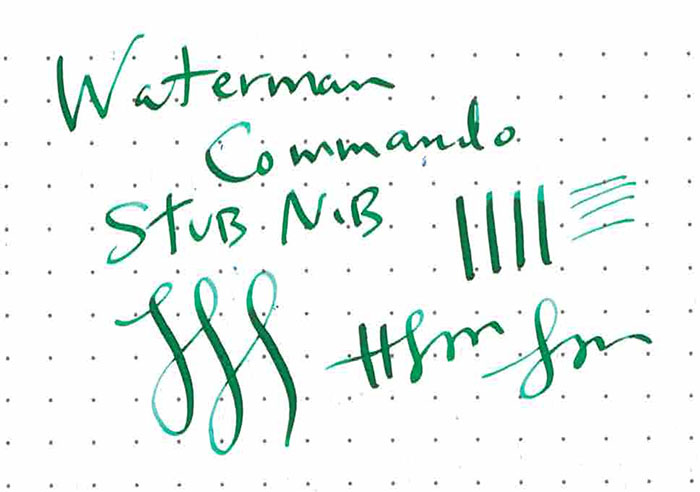 Waterman
Commando
STUB NIB